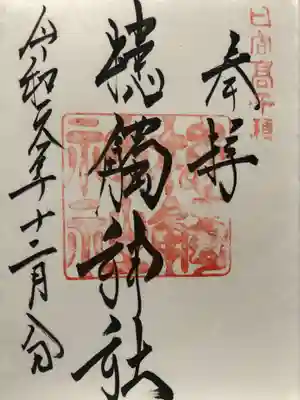 日向高千穂
奉拝
槵觸神社
令和元年十二月